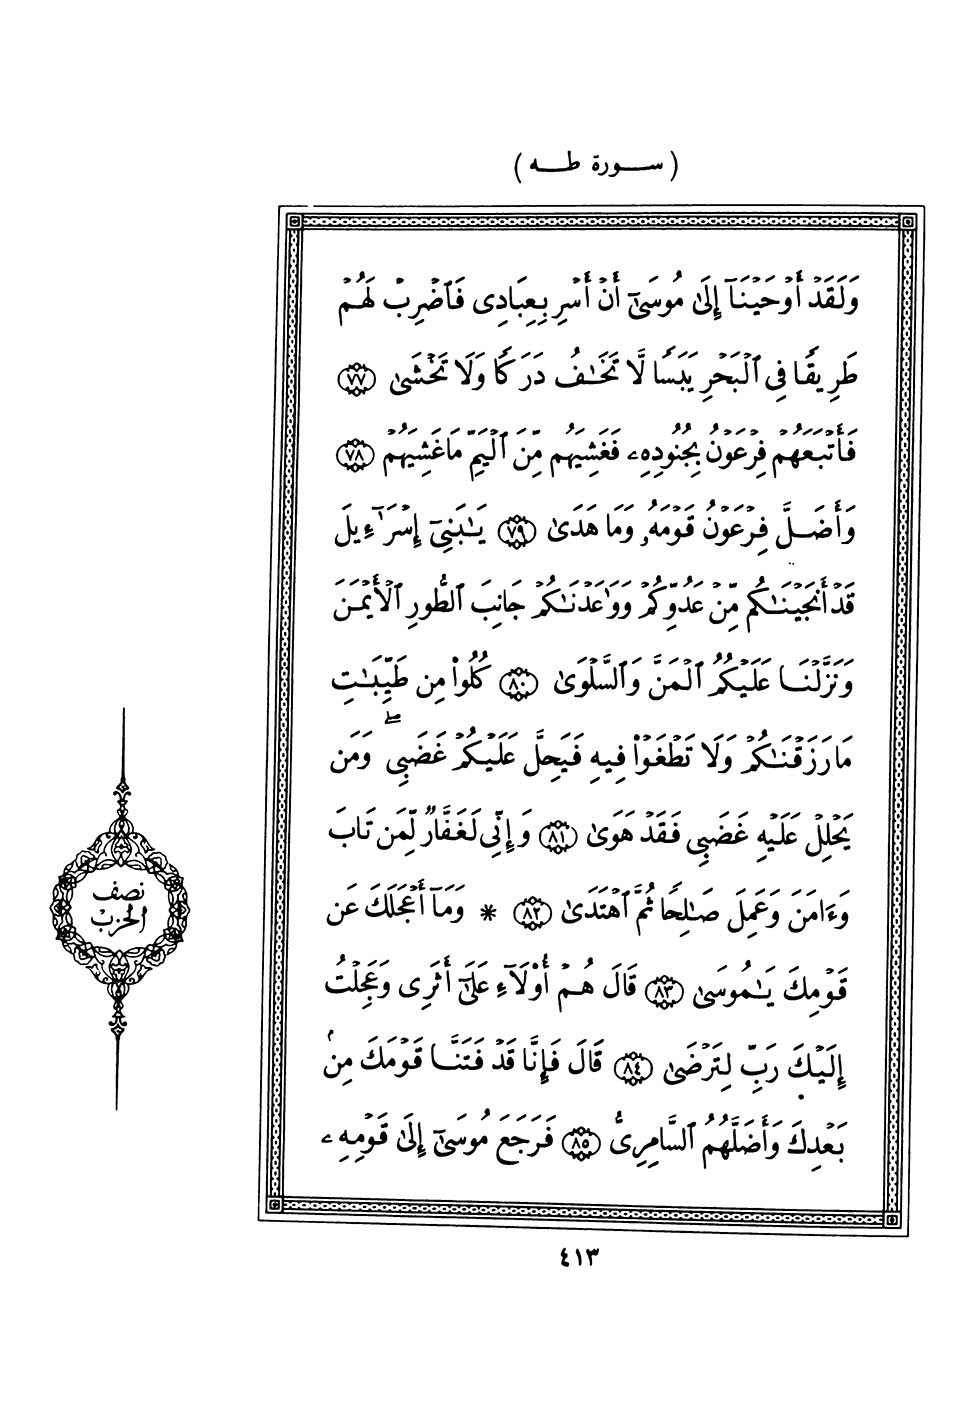 ( سورة طه )
وَلَقَدۡ أَوۡحَيۡنَآ إِلَىٰ مُوسَىٰٓ أَنۡ أَسۡرِ بِعِبَادِى فَٱضۡرِبۡ لَهُمۡ
طَرِيقًا فِى ٱلۡبَحۡرِ يَبَسًا لَّا تَخَٰفُ دَرَكًا وَلَا تَخۡشَىٰ ٧٧
فَأَتۡبَعَهُمۡ فِرۡعَوۡنُ بِجُنُودِهِۦ فَغَشِيَهُم مِّنَ ٱلۡيَمِّ مَا غَشِيَهُمۡ ٧٨
وَأَضَلَّ فِرۡعَوۡنُ قَوۡمَهُۥ وَمَا هَدَىٰ ٧٩ يَٰبَنِىٓ إِسۡرَٰٓءِيلَ
قَدۡ أَنجَيۡنَٰكُم مِّنۡ عَدُوِّكُمۡ وَوَٰعَدۡنَٰكُمۡ جَانِبَ ٱلطُّورِ ٱلۡأَيۡمَنَ
وَنَزَّلۡنَا عَلَيۡكُمُ ٱلۡمَنَّ وَٱلسَّلۡوَىٰ ٨٠ كُلُواْ مِن طَيِّبَٰتِ
مَا رَزَقۡنَٰكُمۡ وَلَا تَطۡغَوۡاْ فِيهِ فَيَحِلَّ عَلَيۡكُمۡ غَضَبِىۖ وَمَن
يَحۡلِلۡ عَلَيۡهِ غَضَبِى فَقَدۡ هَوَىٰ ٨١ وَإِنِّى لَغَفَّارٌ لِّمَن تَابَ
وَءَامَنَ وَعَمِلَ صَٰلِحًا ثُمَّ ٱهۡتَدَىٰ ٨٢ * وَمَآ أَعۡجَلَكَ عَن
قَوۡمِكَ يَٰمُوسَىٰ ٨٣ قَالَ هُمۡ أُوْلَآءِ عَلَىٰٓ أَثَرِى وَعَجِلۡتُ
إِلَيۡكَ رَبِّ لِتَرۡضَىٰ ٨٤ قَالَ فَإِنَّا قَدۡ فَتَنَّا قَوۡمَكَ مِنۢ
بَعۡدِكَ وَأَضَلَّهُمُ ٱلسَّامِرِىُّ ٨٥ فَرَجَعَ مُوسَىٰٓ إِلَىٰ قَوۡمِهِۦ
نصف
الحزب
٤١٣